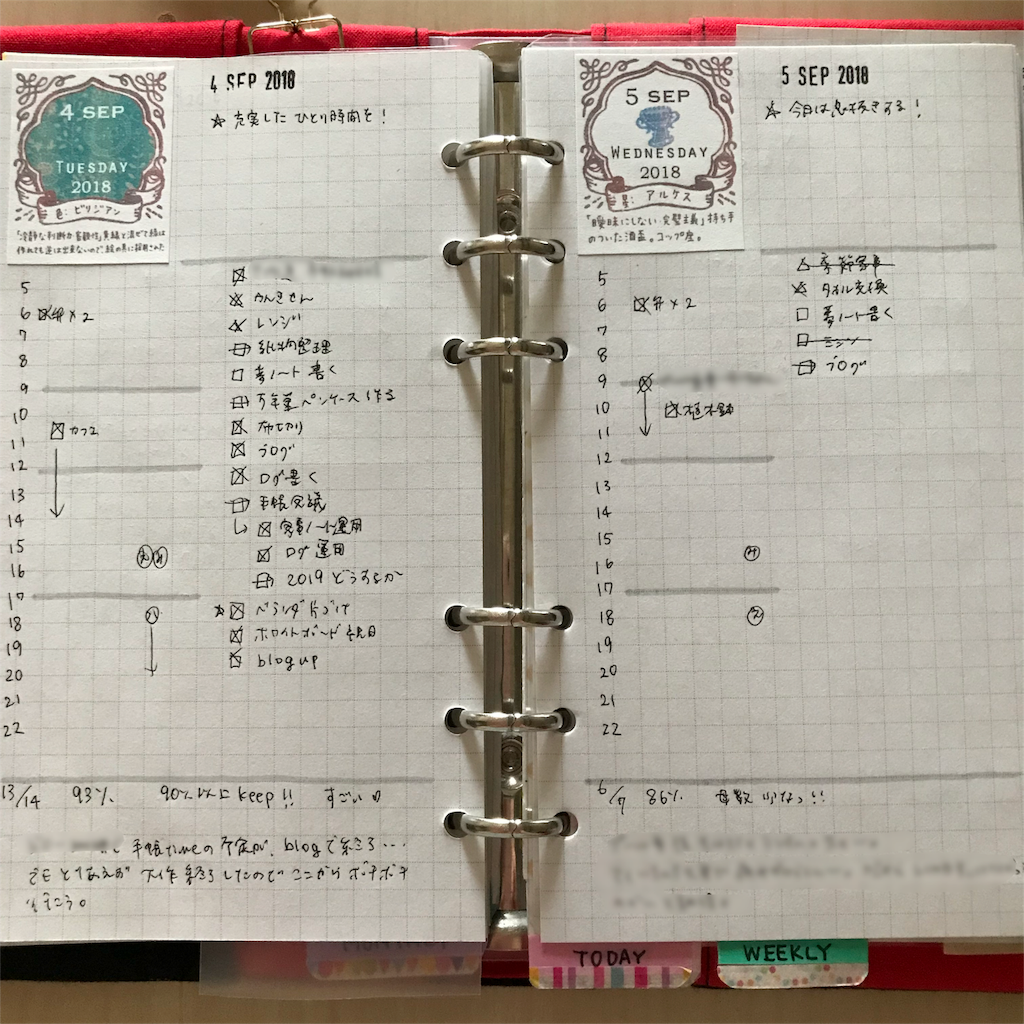 4 SEP
TUESDAY
2018
色:ビリジアン
4 SEP 2018
☆ 充実した ひとり時間を!
5
6 弁×2
7
8
9
10
11 カフェ
12
13
14
15
16
17
18
19
20
21
22
かんきせん
レンジ
紙物整理
夢ノート書く
万年筆ペンケース作る
布切り
ブログ
ログ書く
手帳会議
ノート運用
ログ運用
2019 どうするか
ベランダ片づけ
ホワイトボード
blog up
13/14 93% 90%以上keep!! すごい
手帳timeの予定が、blogで終了...
でも とりあえず 大作 終了したので ここから ボチボチ
5 SEP
WEDNESDAY
2018
星:アルケス
「曖昧にしない完璧主義」持ち手
のついた酒盃。コップ座。
5 SEP 2018
☆ 今日は息抜きする!
5
6 弁×2
7
8
9
10 植木鉢
11
12
13
14
15
16
17
18
19
20
21
22
季節家事
タオル交換
夢ノート書く
ミシン
ブログ
6/7 86% 母数 少なっ!!
TODAY
WEEKLY